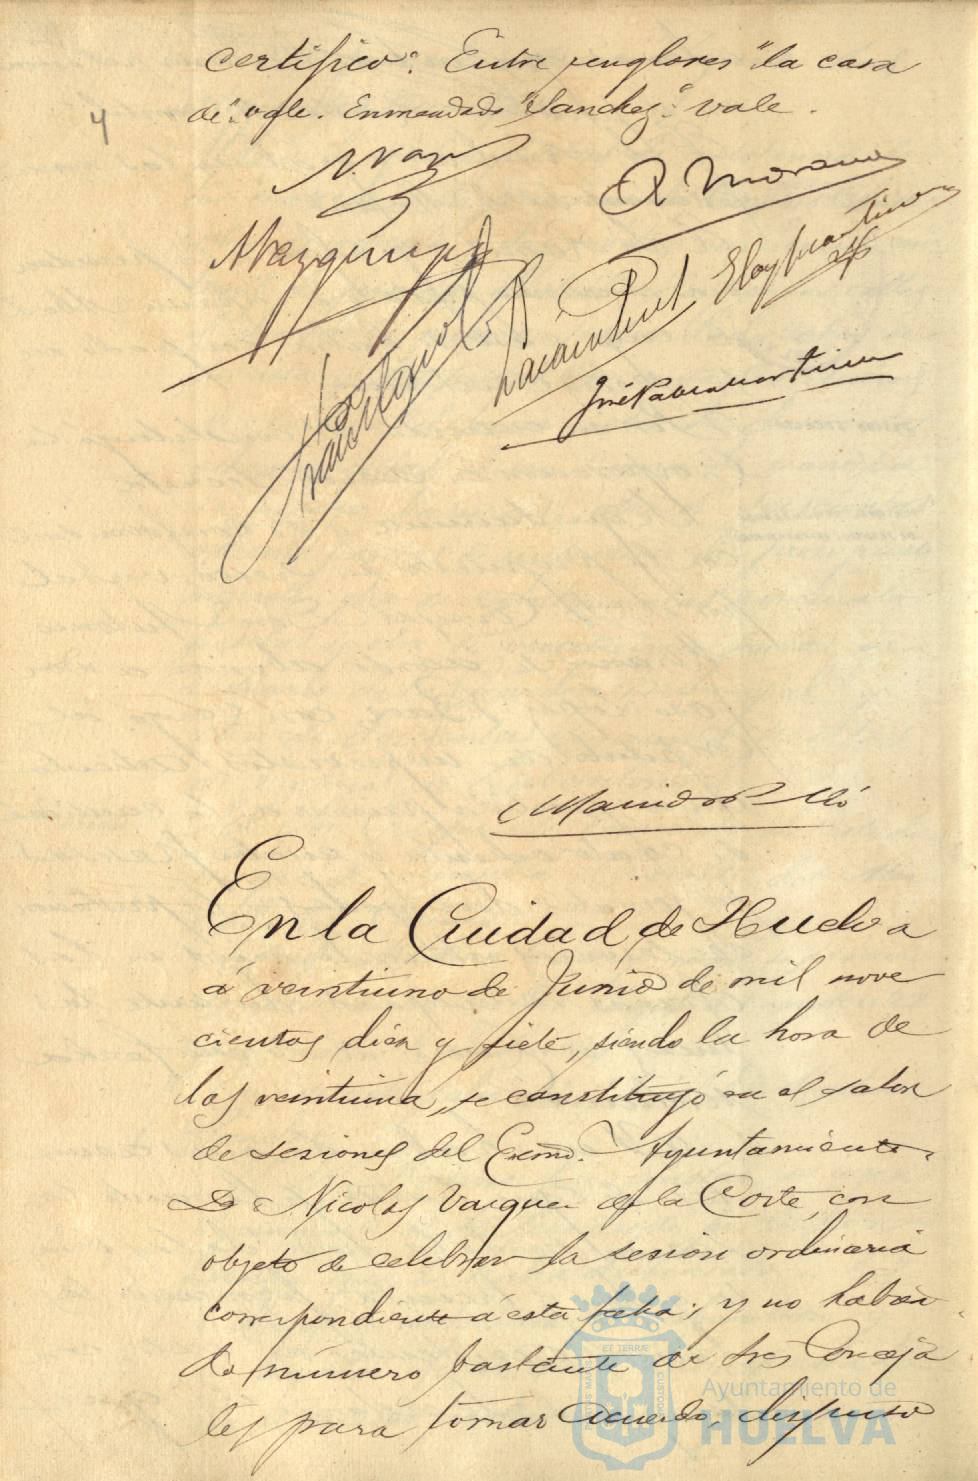 certifico". Entre renglones "la casa
de" vale. Enmendado "Sanchez" vale.
4
A. Moreno
En la Ciudad de Huelva
á veintiuno de Junio de mil nove
cientos diez y siete, siendo la hora de
las veintiuna, se constituyó en el salon
de sesiones del Excmo. Ayuntamiento
D Nicolas Vazquez de la Corte, con
objeto de celebrar la sesión ordinaria
correspondiente á esta fecha; y no habien
do número bastante de Sres Conceja
les para tomar acuerdo, dispuso
Ayuntamiento de
HUELVA